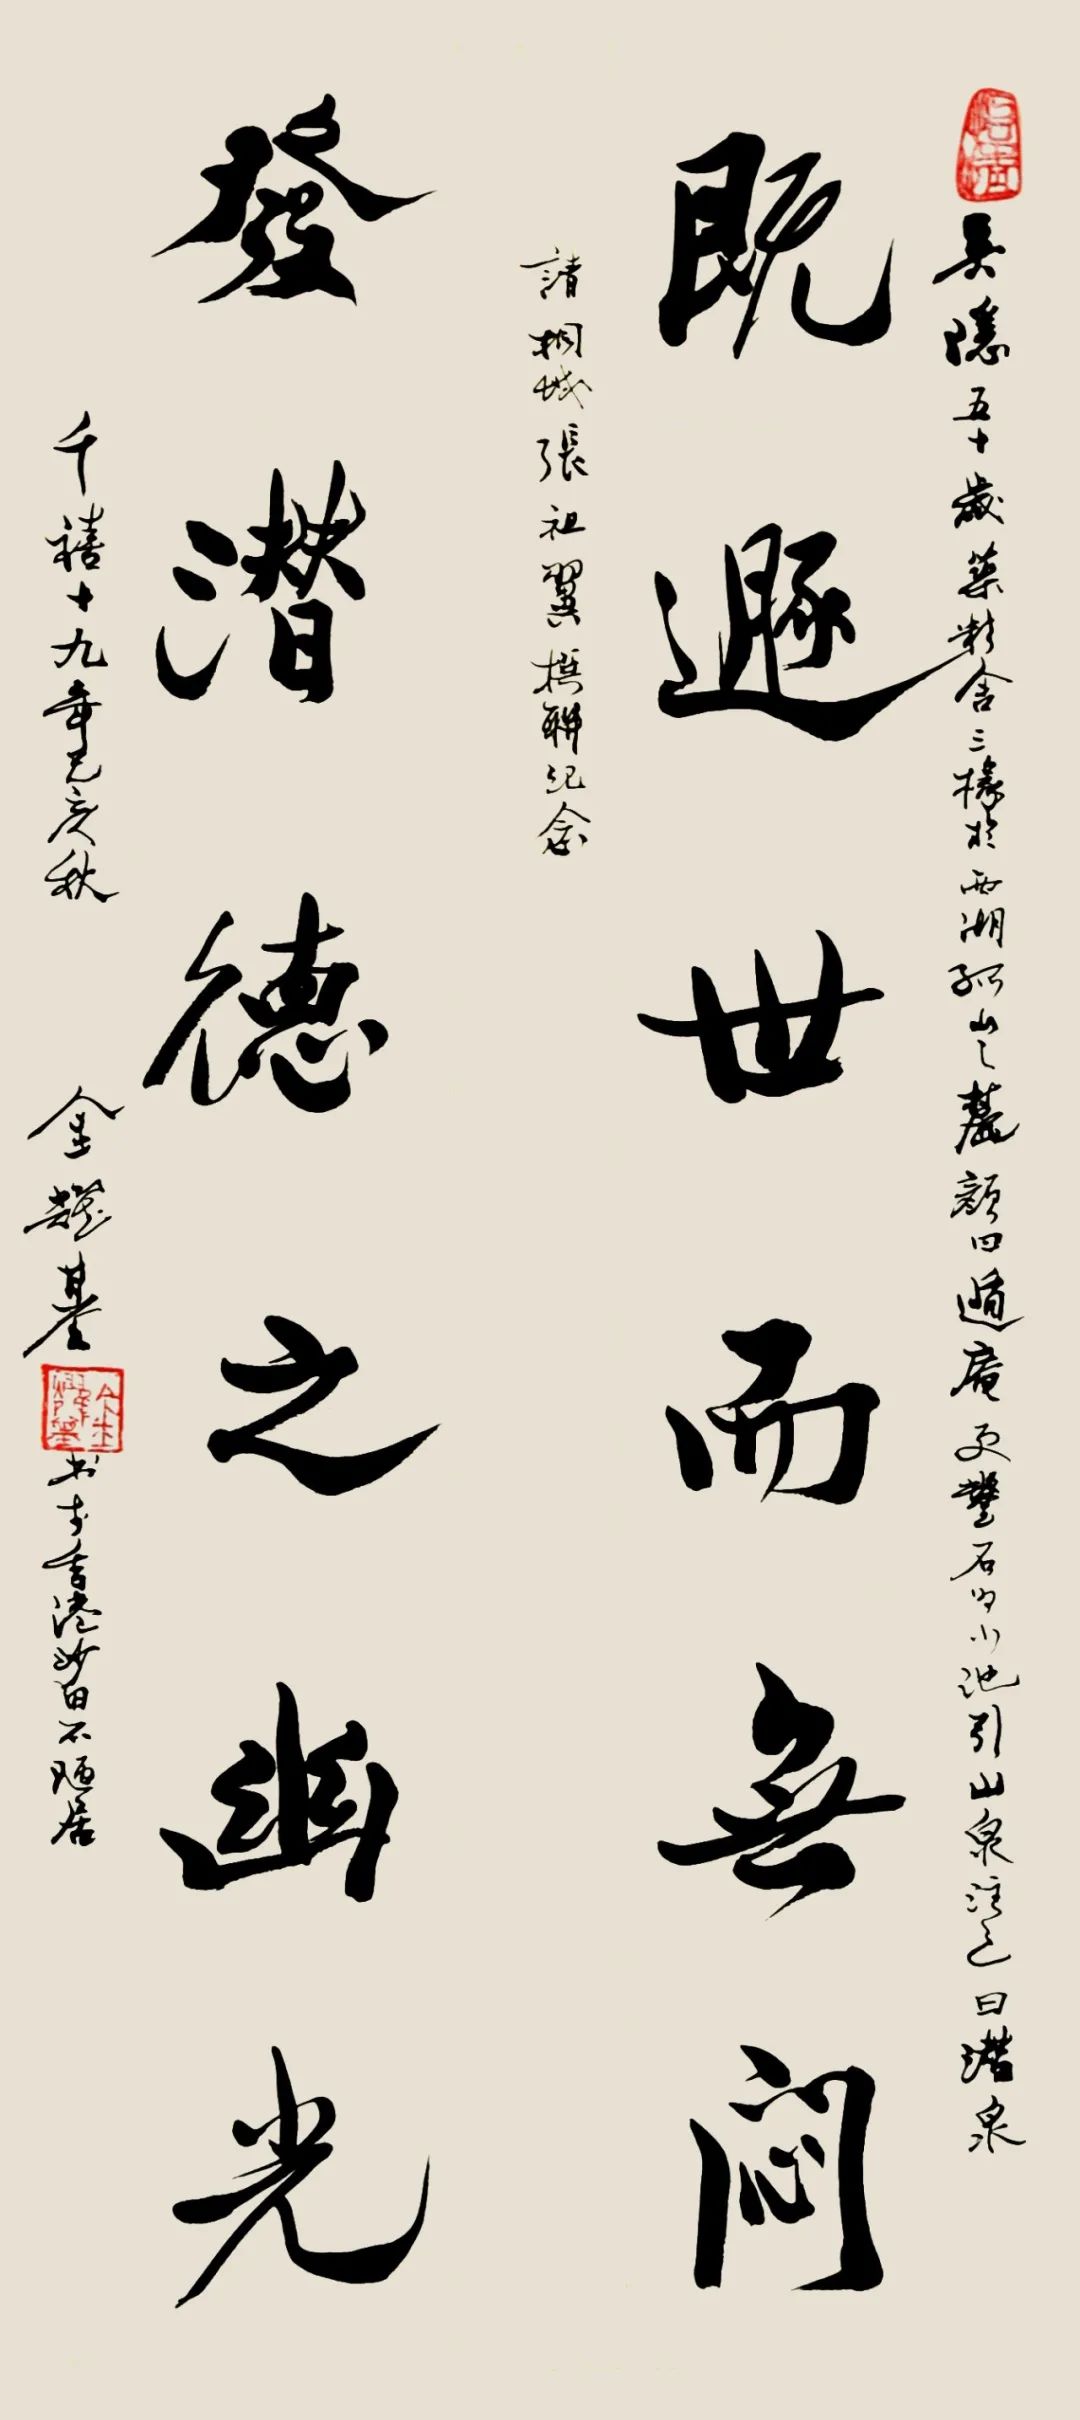 吴隱五十歲築精舍三椽於西湖孤山之麓顏曰遁庵更鑿石为小池引山泉注之曰潛泉
既遯世而無悶
請桐城張祖翼撰聯紀念
發潛德之幽光
千禧十九年己亥秋
金耀基
书于香港沙田不陋居